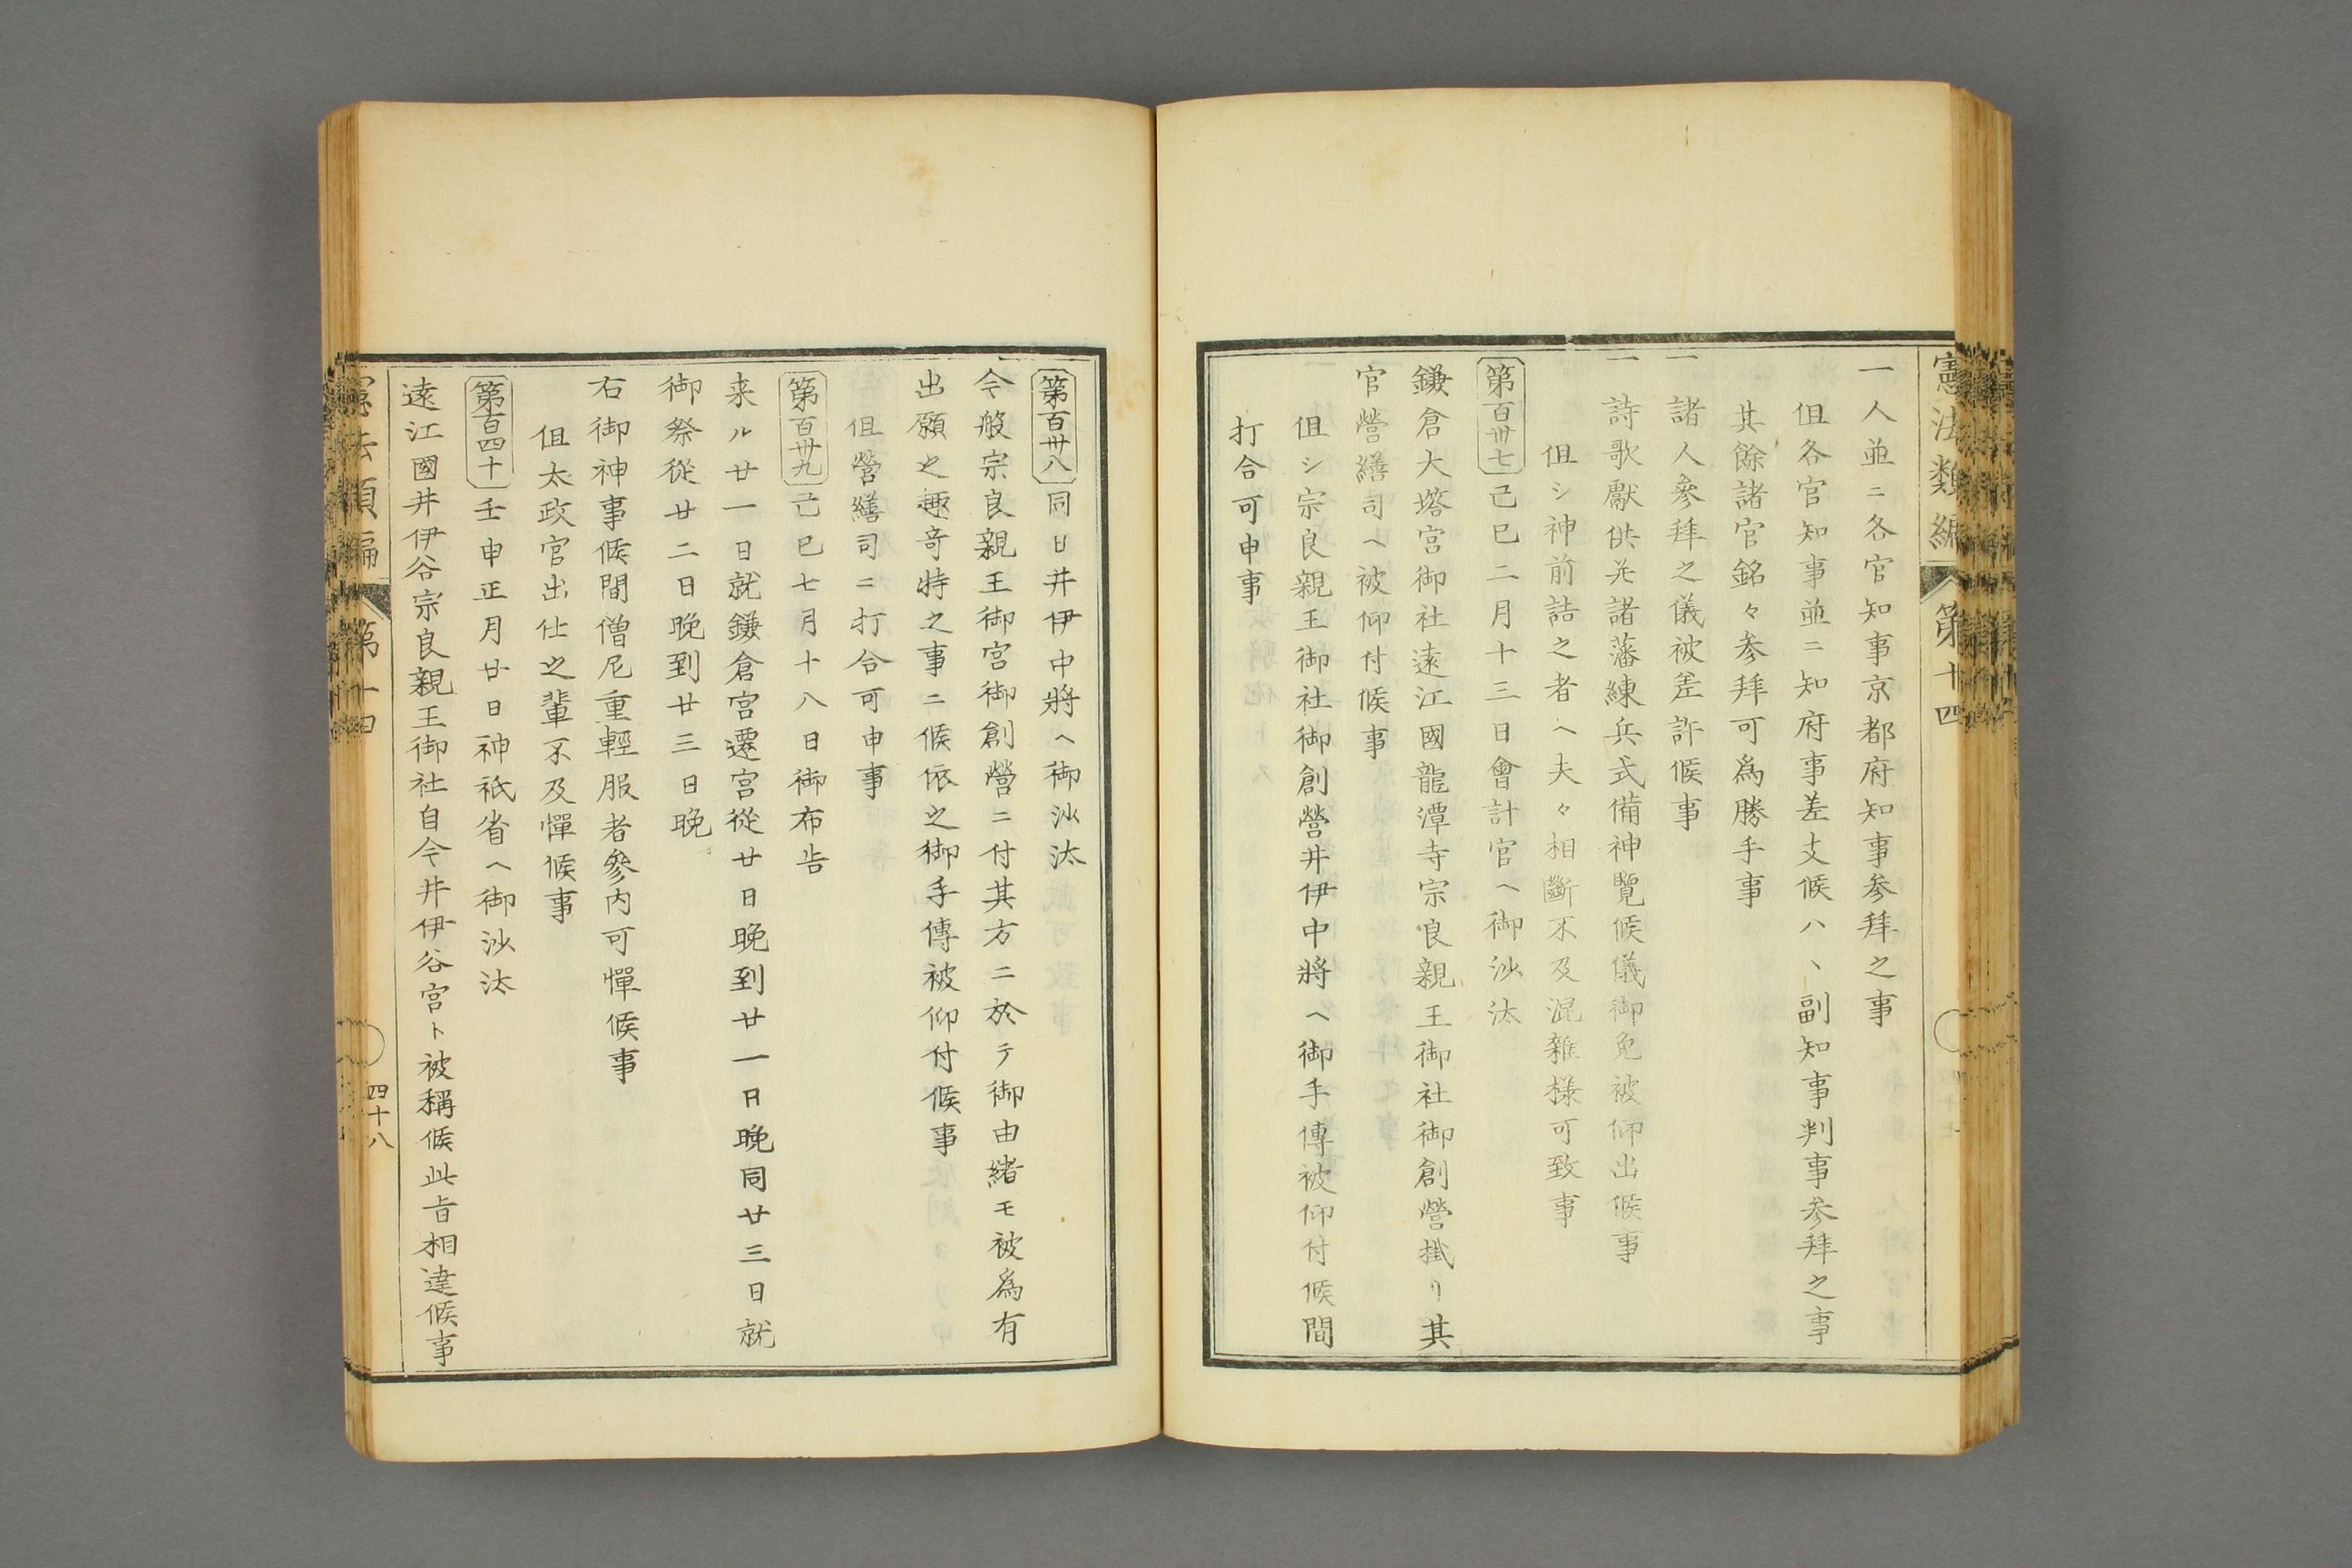 憲法類編 第十四
一人並ニ各官知事京都府知事参拜之事
但各官知事並ニ知府事差支候ハヽ副知事判事参拜之事
其餘諸官銘々参拜可爲勝手事
一諸人參拜之儀被差許候事
一詩歌獻供並諸藩練兵式備神覽候儀御免被仰出候事
但シ神前詰之者ヘ夫々相斷不及混雜様可致事
第百卅七 己巳二月十三日會計官ヘ御沙汰
鎌倉大塔宮御社遠江國龍潭寺宗良親王御社御創營掛リ其
官營繕司ヘ被仰付候事
但シ宗良親王御社御創營井伊中將ヘ御手傳被仰付候間
打合可申事
第百卅八 同日井伊中將ヘ御沙汰
今般宗良親王御宮御創營ニ付其方ニ於テ御由緒モ被爲有
出願之趣奇特之事ニ候依之御手傳被仰付候事
但營繕司ニ打合可申事
第百卅九 己巳七月十八日御布告
来ル廿一日就鎌倉宮遷宮從廿日晩到廿一日晩同廿三日就
御祭從廿二日晩到廿三日晩
右御神事候間僧尼重輕服者參内可憚候事
但太政官出仕之輩不及憚候事
第百四十 壬申正月廿日神祇省ヘ御沙汰
遠江國井伊谷宗良親王御社自今井伊谷宮ト被稱候此旨相達候事
憲法類編 第十四 四十八